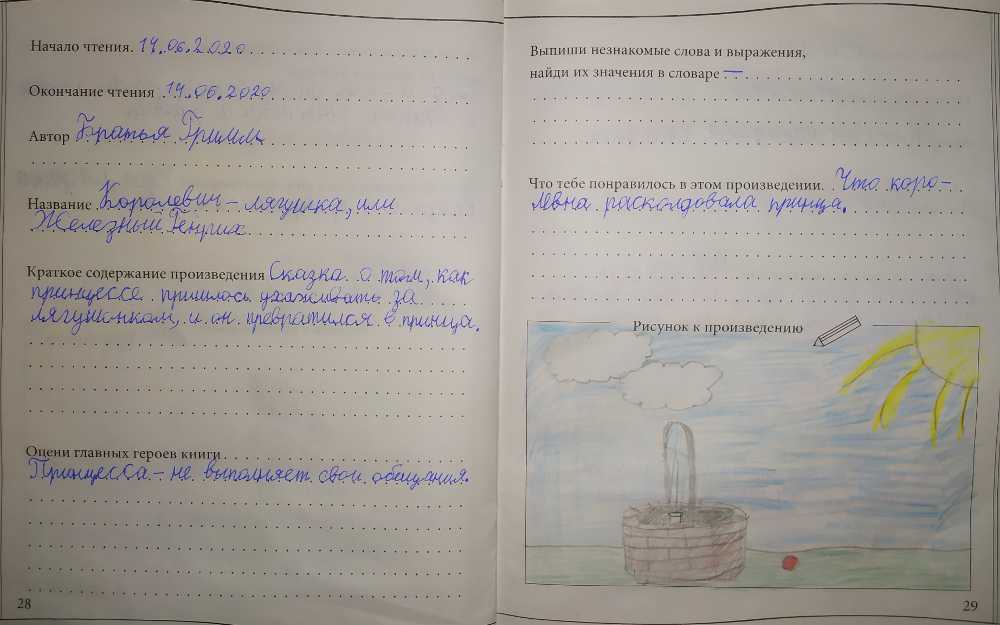 Начало чтения. 14.06.2020
Окончание чтения 14.06.2020
Автор Братья Гримм
Название Королевич – лягушка, или
Железный Генрих
Краткое содержание произведения Сказка о том, как
принцессе пришлось ухаживать за
лягушонком, и он превратился в принца.
Оцени главных героев книги
Принцесса – не выполняет свои обещания.
28
Выпиши незнакомые слова и выражения,
найди их значения в словаре —
Что тебе понравилось в этом произведении. Что коро-
левна расколдовала принца.
Рисунок к произведению
29